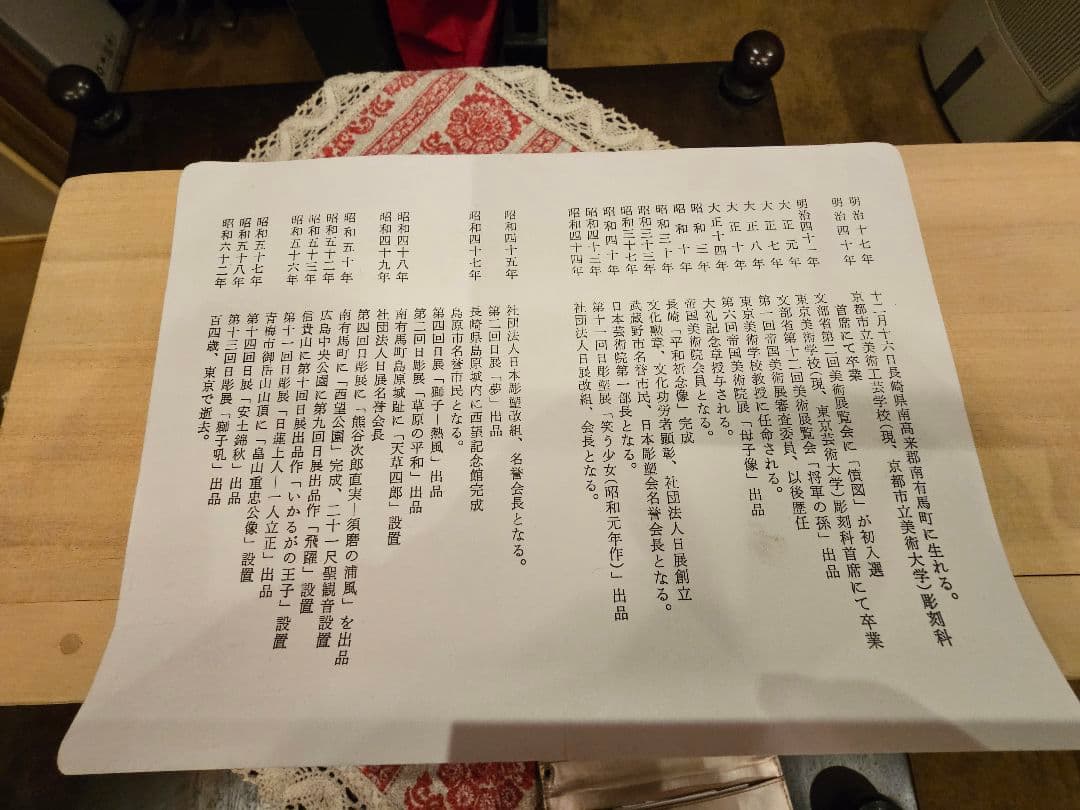 明治十七年 十二月十六日長崎県南高来郡南有馬町に生れる。
明治四十年 京都市立美術工芸学校(現、京都市立美術大学)彫刻科
首席にて卒業
明治四十一年 文部省第二回美術展覧会に「憤図」が初入選
大正元年 東京美術学校(現、東京芸術大学)彫刻科首席にて卒業
大正七年 文部省第十二回美術展覧会「将軍の孫」出品
大正八年 第一回帝国美術展審査委員、以後歴任
大正十年 東京美術学校教授に任命される。
大正十四年 第六回帝国美術院展「母子像」出品
昭和三年 大礼記念章授与される。
昭和十年 帝国美術院会員となる。
昭和三十年 長崎「平和祈念像」完成
昭和三十三年 文化勲章、文化功労者顕彰、社団法人日展創立
昭和三十七年 武蔵野市名誉市民、日本彫塑会名誉会長となる。
昭和四十年 日本芸術院第一部長となる。
昭和四十三年 第十一回日彫塑展「笑う少女(昭和元年作)」出品
昭和四十四年 社団法人日展改組、会長となる。
昭和四十五年 社団法人日本彫塑改組、名誉会長となる。
第二回日展「夢」出品
昭和四十七年 長崎県島原城内に西望記念館完成
島原市名誉市民となる。
第四回日展「獅子ー熱風」出品
昭和四十八年 第二回日彫展「草原の平和」出品
南有馬町島原城趾に「天草四郎」設置
昭和四十九年 社団法人日展名誉会長
昭和五十年 第四回日彫展に「熊谷次郎直実ー須磨の浦風」を出品
昭和五十二年 南有馬町に「西望公園」完成、二十一尺聖観音設置
昭和五十三年 広島中央公園に第九回日展出品作「飛躍」設置
昭和五十六年 信貴山に第十回日展出品作「いかるがの王子」設置
第十一回日彫展「日蓮上人ー一人立正」出品
昭和五十七年 青梅市御岳山山頂に「畠山重忠公像」設置
昭和五十八年 第十四回日展「安土錦秋」出品
昭和六十二年 第十三回日彫展「獅子吼」出品
百四歳、東京で逝去。